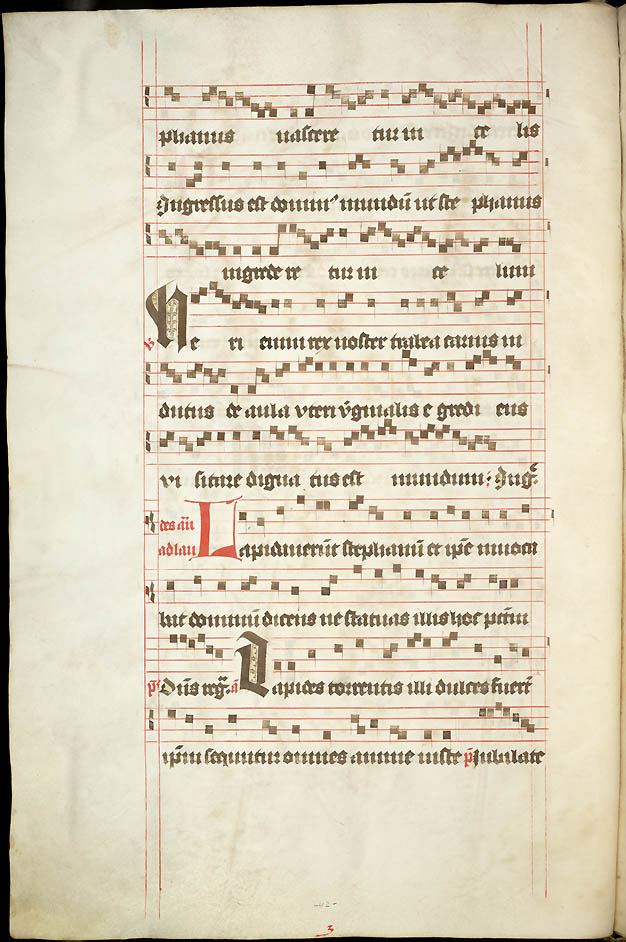 phanus nasceretur in celis
Ingressus est domin' mundū ut stephanus
ingrederetur in celum
v Heri enim rex noster trabea carnis in
dutus de aula uteri v̄ginalis egrediens
visitare dignatus est mundum: Ingr̄
Lapidaverūt stephanū et ip̄e invoca
ad lau
bat dominū dicens ne statuas illis hoc pctm̄
p̄s Dn̄s reḡ. a Lapides torrentis illi dulces fuer̄t
ip̄m sequntur omnes anime iuste p̄s Jubilate
-42-
3